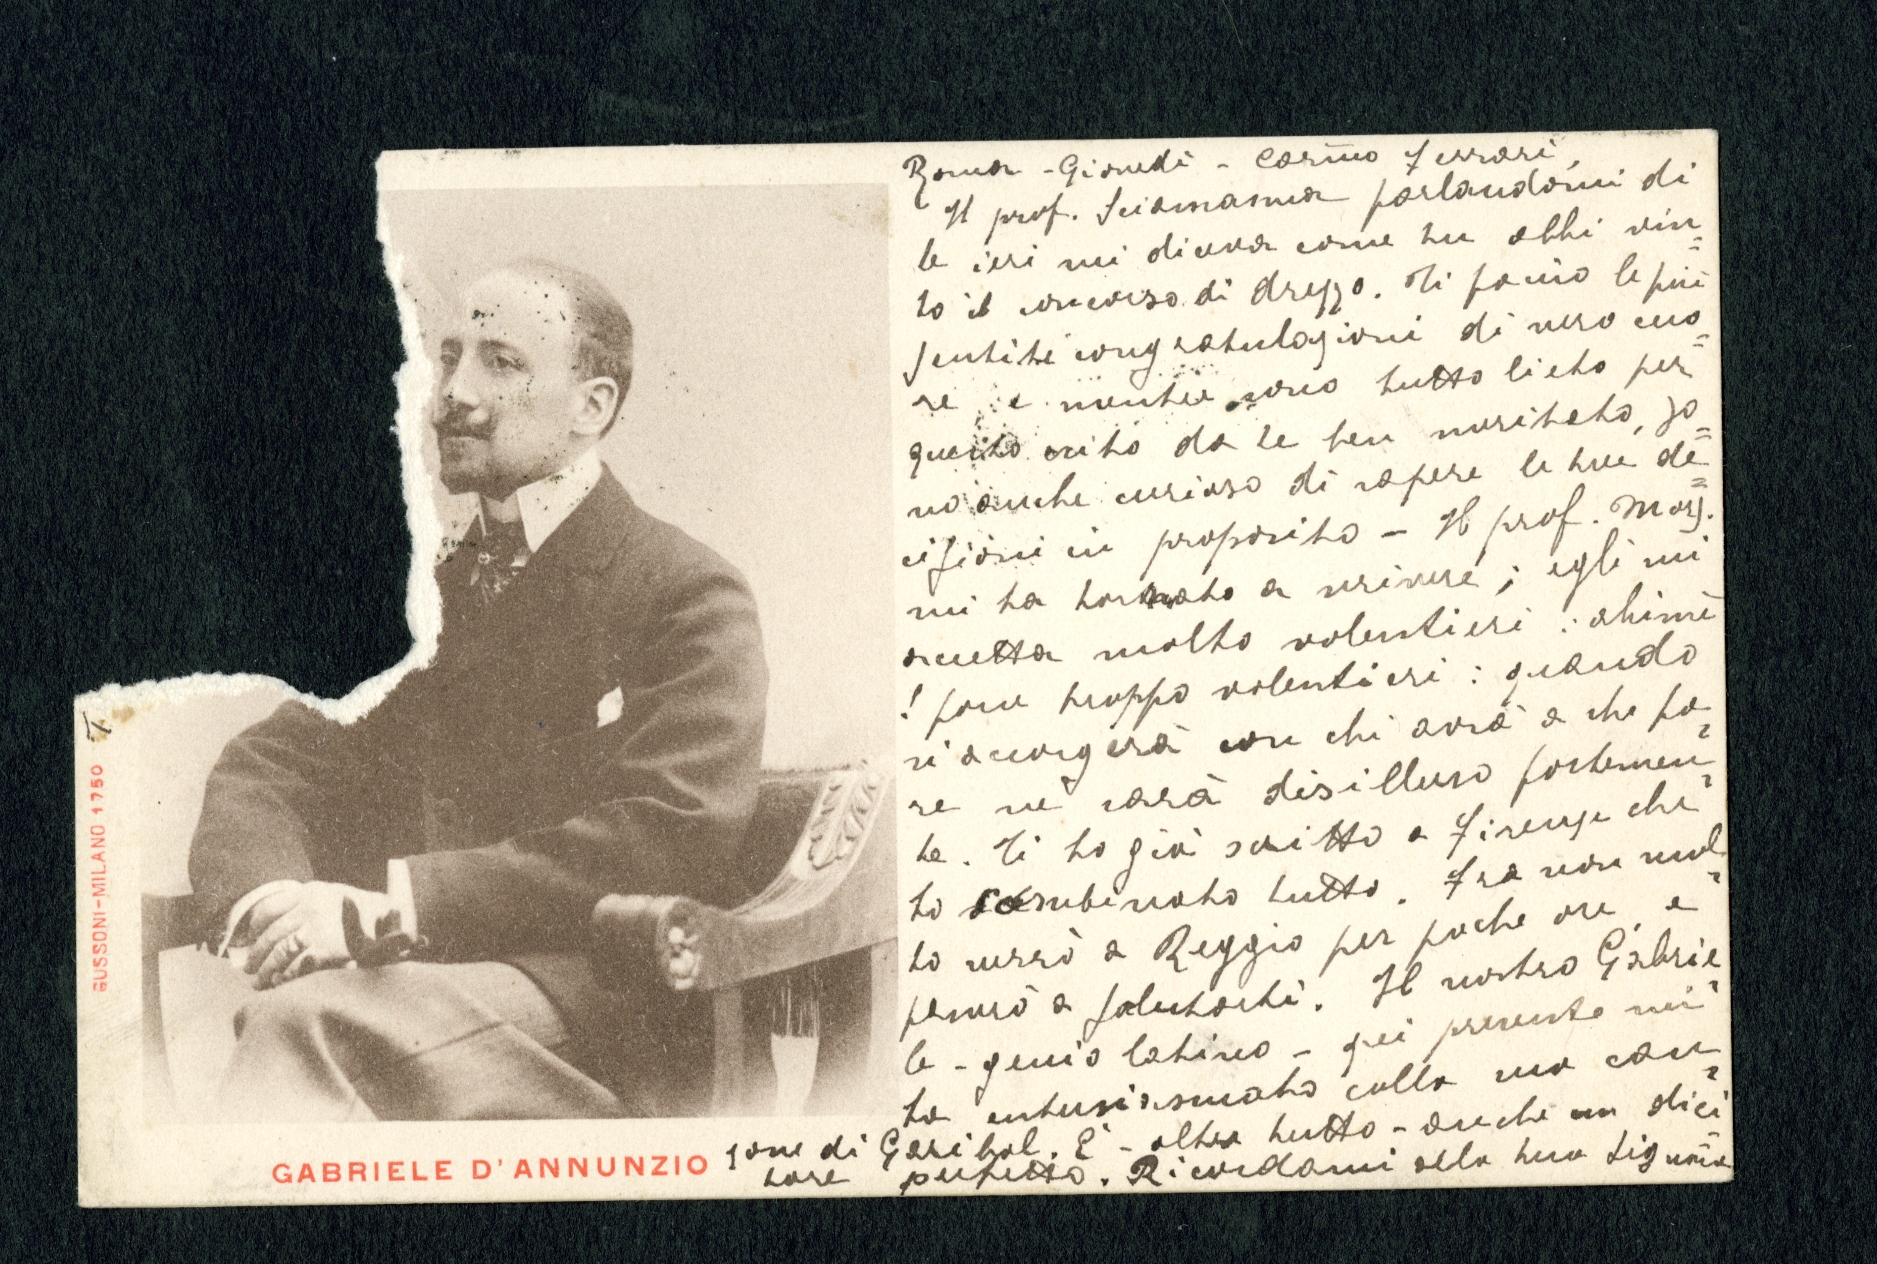 Roma - Giovedì - Carmo Ferrari,
Il prof. Sciamanna parlandomi di
te ieri mi diceva come tu abbi vin=
to il concorso di Arezzo. Ti facio le più
sentite congratulazioni di vero cuo=
re e mentre sono tutto lieto per
questo esito da te ben meritato, so=
no anche curioso di sapere le tue de=
cisioni in proposito - Il prof. Marj.
mi ha tornato a scrivere; egli mi
accetta molto volentieri: ahimè
! forse troppo volentieri: quando
si accorgerà con chi avrà a che fa=
re ne sarà disilluso fortemen=
te. Ti ho già scritto a Firenze che
ho combinato tutto. Fra non mol=
to verrò a Reggio per poche ore, e
penserò a salutarti. Il nostro Gabrie=
le - genio latino - qui presente mi
ha entusiasmato colla sua can=
zone di Garibal. È - oltre tutto - anche un dici
tore perfetto. Ricordami alla tua Signora
GABRIELE D'ANNUNZIO
GUSSONI-MILANO 1750